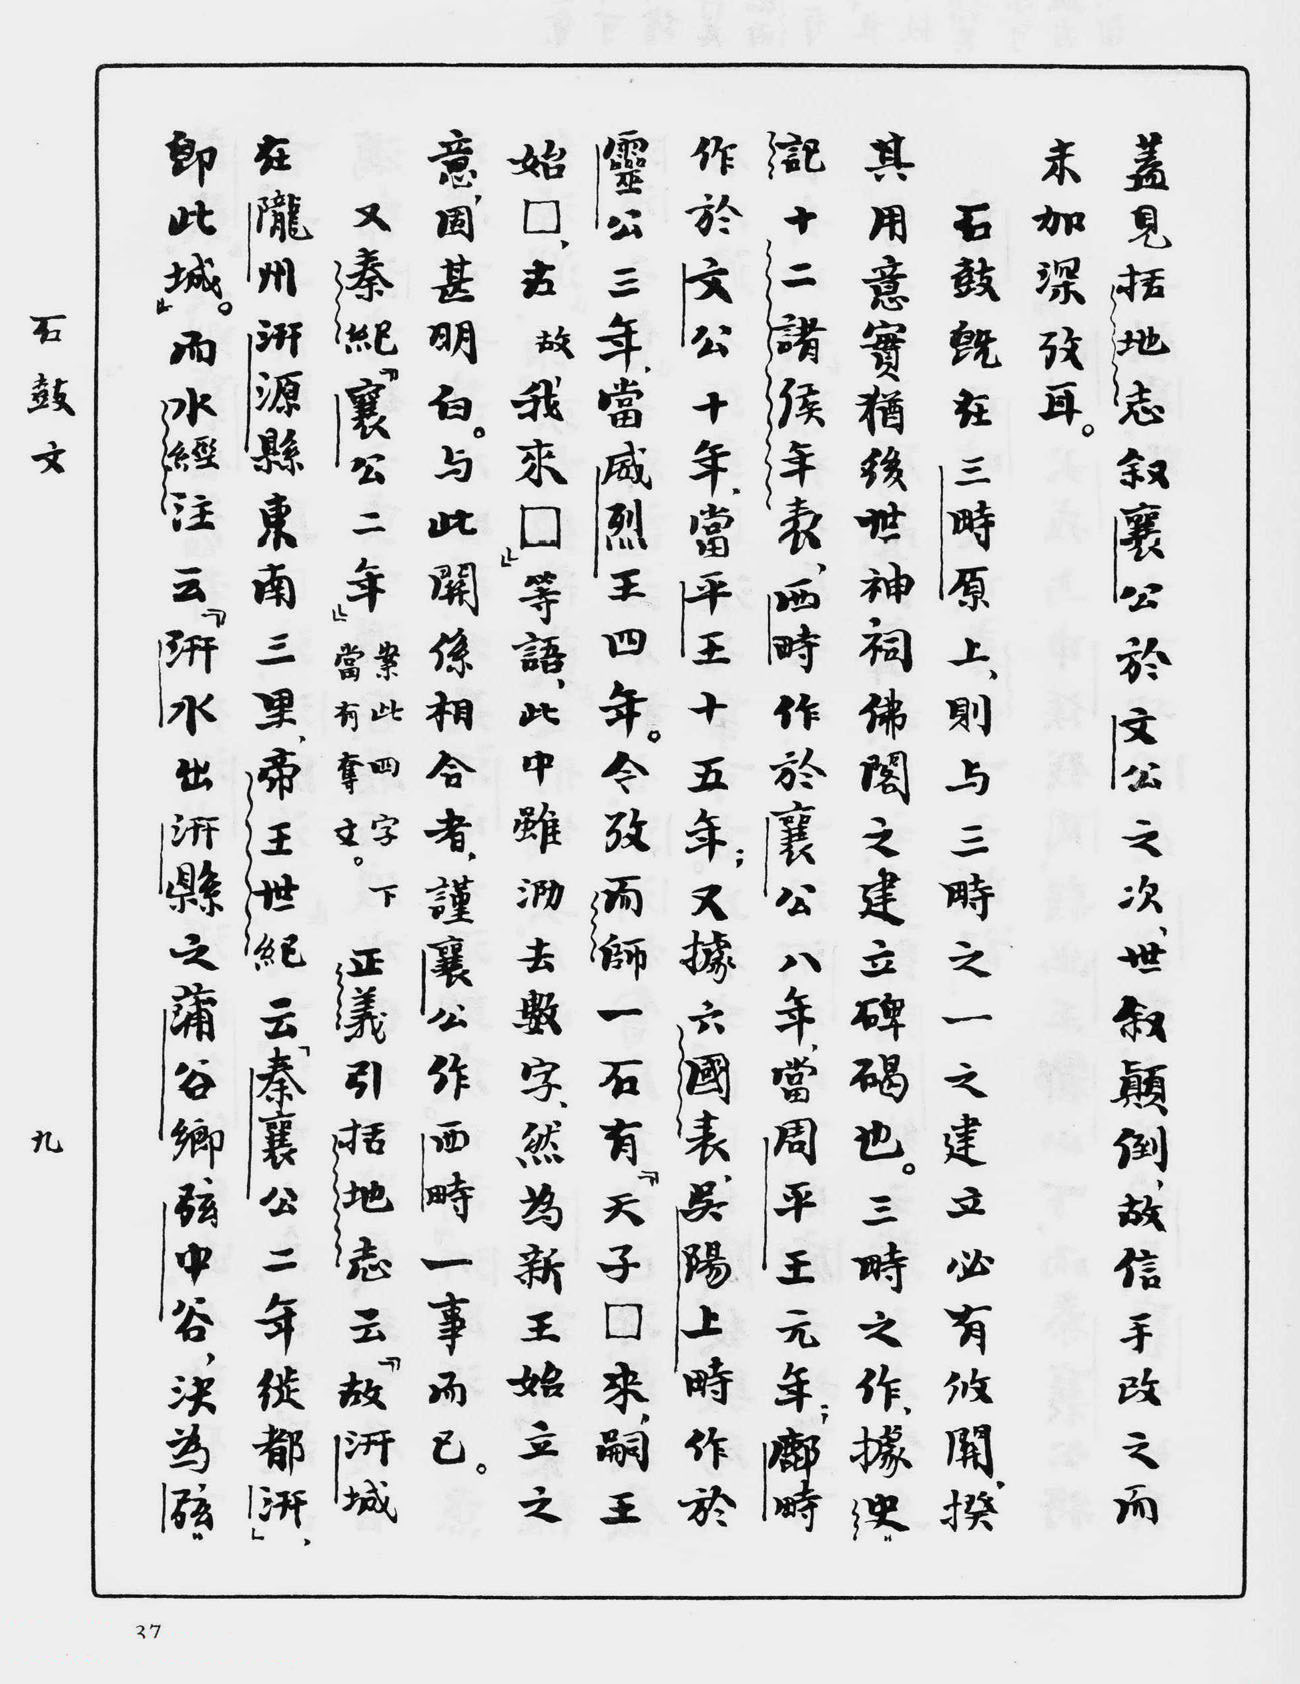 蓋見括地志叙襄公於文公之次、世叙顛倒、故信手改之而
未加深攷耳。
石鼓既在三畤原上、則与三畤之一之建立必有攸關、揆
其用意實猶後世神祠佛閣之建立碑碣也。三畤之作、據史
記十二諸侯年表、西畤作於襄公八年、當周平王元年；鄜畤
作於文公十年、當平王十五年；又據六國表、吳陽上畤作於
靈公三年、當威烈王四年。今攷而師一石有「天子□來、嗣王
始□、古故我來□」等語、此中雖泐去數字、然為新王始立之
意、固甚明白。与此關係相合者、謹襄公作西畤一事而已。
又秦紀「襄公二年」案此四字下當有奪文。正義引括地志云「故汧城
在隴州汧源縣東南三里、帝王世紀云「秦襄公二年徙都汧」、
即此城」。而水經注云「汧水出汧縣之蒲谷鄉弦中谷，決為弦
石鼓文
九
37